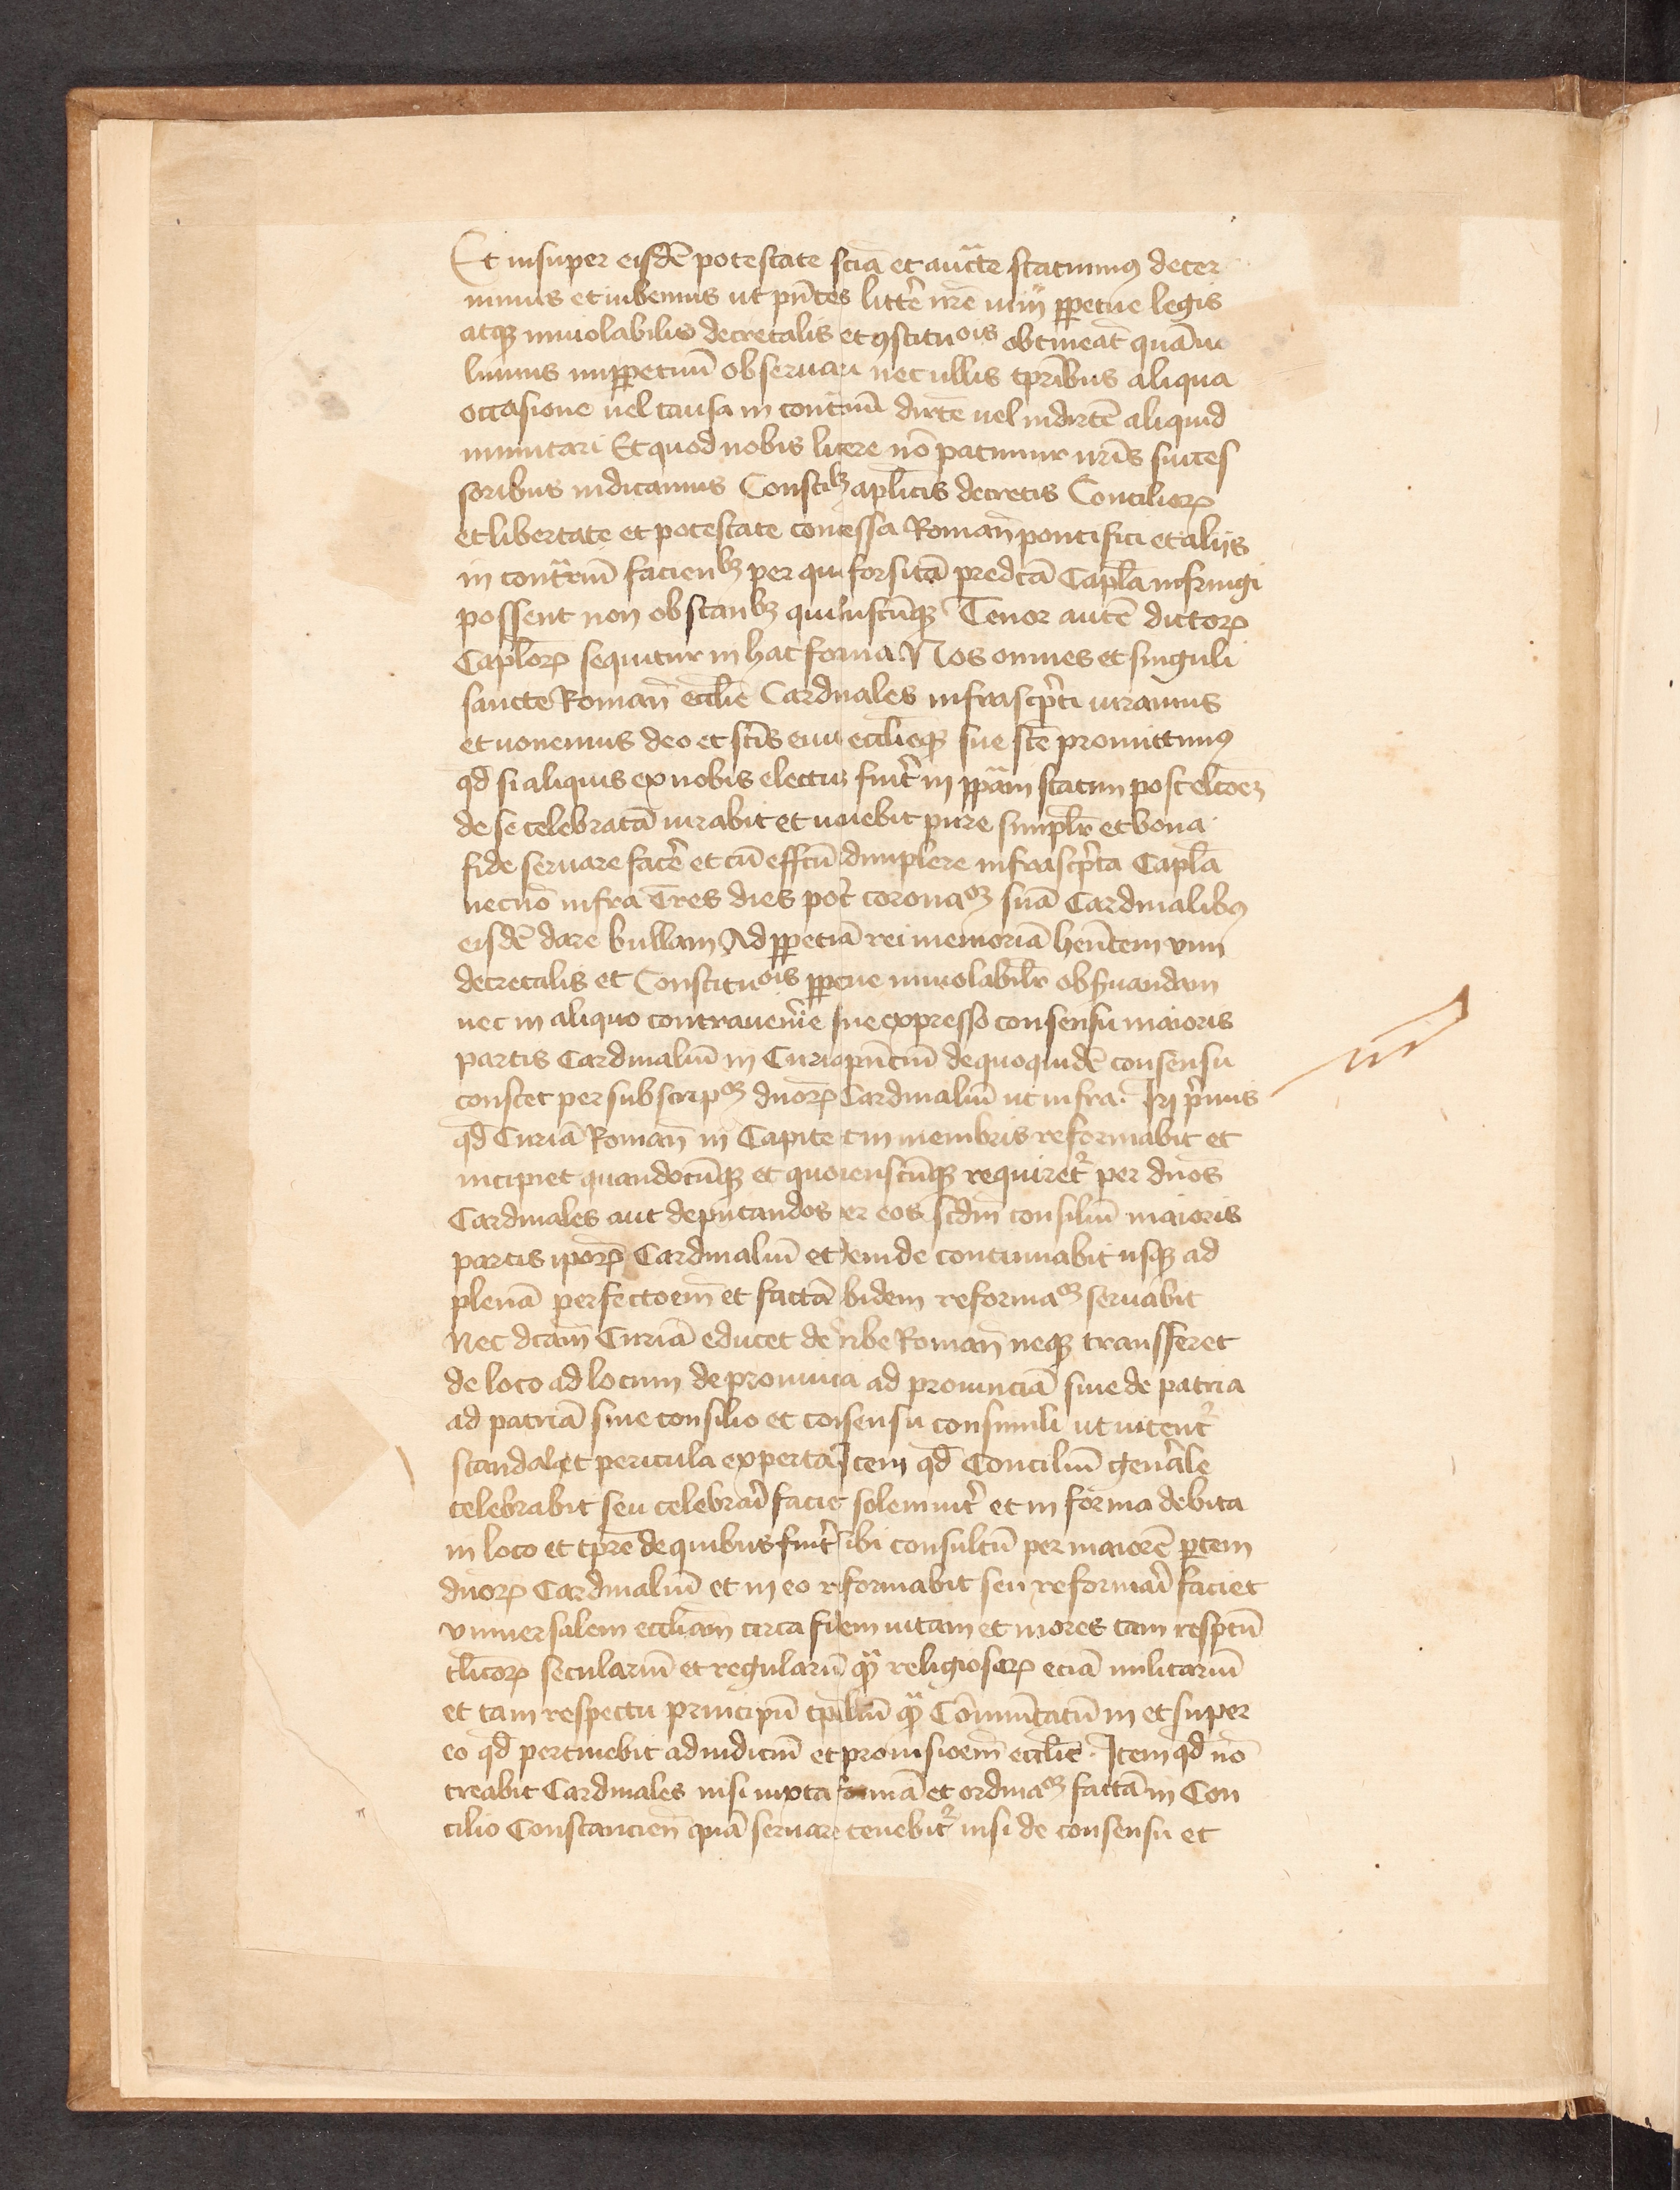 Et insup̲er eisdē potestate sciā et auctē statuimꝰ deter
minus et iubemus ut pn̄tes litter̄ nr̄e uim ꝑpetue legis
atqꝫ inuiolabilis decretalis et ꝯstituōis obtineāt quā uo
lumus imꝑpetuū obseruari nec ullis tp̄ribus aliqua
occasione uel causa in contr̄iū dirc̄te uel indirc̄te aliquid
inmutari Et quod nobis licere nō patimur nr̄is succes
soribus indicamus Constibꝫ apl̄icis decretis Concilioꝝ
et libertate et potestate concessa Roman̄ pontifici et aliis
in contr̄riū facienbꝫ per que forsitā predc̄ā Capl̄a infringi
possent non obstanbꝫ quibuscūqꝫ Tenor autē dictoꝝ
Capl̄oꝝ sequitur in hac forma Nos omnes et singuli
sancte Roman̄ eccl̄ie Cardinales infrascrīpti iuramus
et uouemus deo et sc̄is eius eccl̄ieqꝫ sue sc̄te promittimꝰ
qd̄ si aliquis ex nobis electus fuer̄it in pp̄am statim post elcōeꝫ
de se celebratā iurabit et uouebit pure simpl̄r et bona
fide seruare facer̄e et cū effc̄tū adimplere infrascrīpta Capl̄a
necnō infra Tres dies post coronaōꝫ suā Cardinalibꝰ
eisdē dare bullam Ad ꝑpetuā rei memoriā hn̄tem vim
decretalis et Constituōis ꝑpetue inuiolabilr̄ obseruandam
nec in aliquo contrauenire sine expresso consensu maioris
partis Cardinaliū in Curia pn̄tiū de quo quidē consensu
constet per subscripōꝫ duoꝝ Cardinaliū ut infra. In primis
qd̄ Curiā Roman̄ in Capite et in membris reformabit et
incipiet quandocūqꝫ et quocienscūqꝫ requiret̉ per dn̄os
Cardinales aut deputandos per eos scd̄m consiliū maioris
partis ip̄oꝝ Cardinaliū et deinde continuabit usqꝫ ad
plenā perfectōem et factā ibidem reformaōꝫ seruabit
Nec dc̄am Curiā educet de urbe Roman̄ neqꝫ transfferet
de loco ad locum de prouincia ad prouinciā siue de patria
ad patriā sine consilio et consensu consimili ut uitent̉
scandala et pericula experta Item qd̄ Conciliū gener̄ale
celebrabit seu celebrar̄i faciet solemnit̉ et in forma debita
in loco et tp̄re de quibus fuer̄it sibi consultū per maiorē ꝑtem
dn̄oꝝ Cardinaliū et in eo reformabit seu reformar̄i faciet
vniuersalem eccl̄iam circa fidem uitam et mores tam respc̄tū
cl̄icoꝝ seculariū et regulariū qꝫ religiosoꝝ eciā militariū
et tam respectu principū tp̄aliū qꝫ Com̄unitatū in et super
eo qd̄ pertinebit ad iudiciū et prouisioem̄ eccl̄ie. Item qd̄ nō
creabit Cardinales nisi iuxta formā et ordinaōꝫ factā in Con
cilio Constancien̄ quā seruare tenebit̉ nisi de consensu et